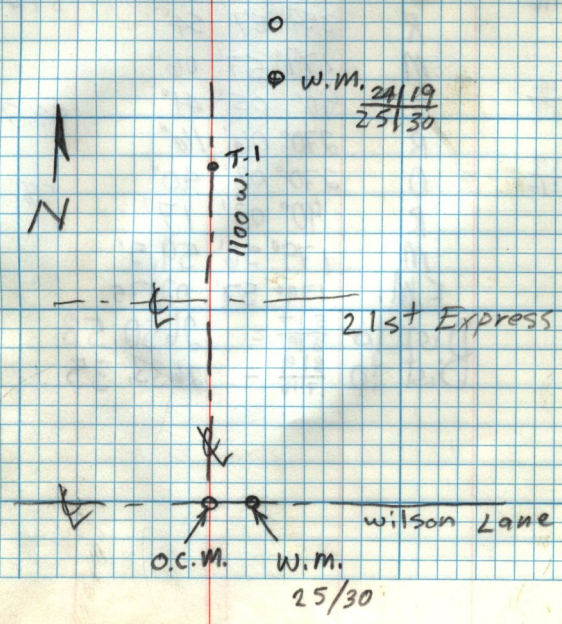 W.M.
24 | 19
25 | 30
T-1
N
1100 W.
℄
21st Express
℄
℄
Wilson Lane
O.C.M. W.M.
25/30